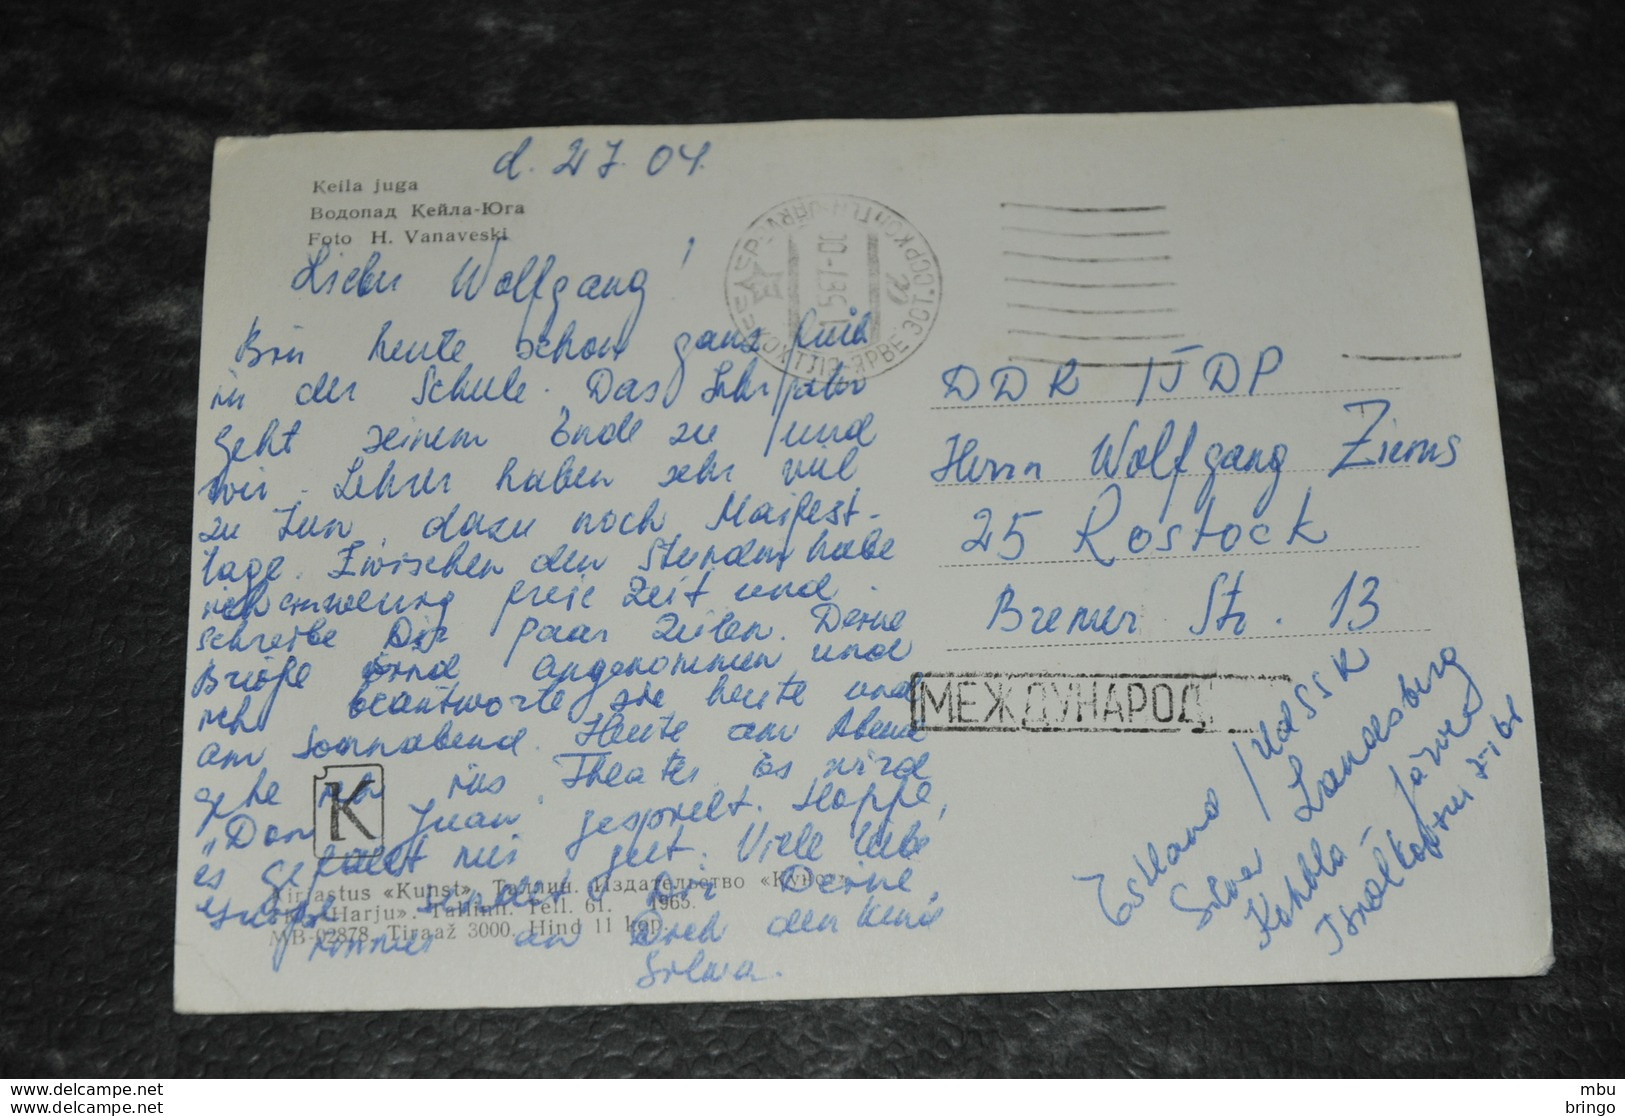 d. 27. 04.
Keila juga
Водопад Кейла-Юга
Foto H. Vanaveski
Lieber Wolfgang!
Bin heute schon ganz früh
in der Schule. Das Lehrjahr
geht seinem Ende zu und
wir Lehrer haben sehr viel
zu tun, dazu noch Maifest-
tage. Zwischen den Stunden habe
ich ein wenig freie Zeit und
schreibe Dir paar Zeilen. Deine
Briefe sind angenommen und
ich beantworte sie heute und
am Sonnabend. Heute am Abend
gehe ich ins Theater. Es wird
"Don Juan" gespielt. Hoffe,
es gefällt mir gut. Viele liebe
Grüße sendet Dir Deine,
immer an Dich denkende
Silwa.
K
Kirjastus «Kunst», Таллин. Издательство «Кунст»
«Harju». Tallinn. Tell. 61. 1965.
MB-02878. Tiraaž 3000. Hind 11 kop.
DDR / GDP
Herrn Wolfgang Ziems
25 Rostock
Bremer Str. 13
МЕЖДУНАРОД
Estland / UdSSR
Silwa Landesberg
Kohtla-Järve